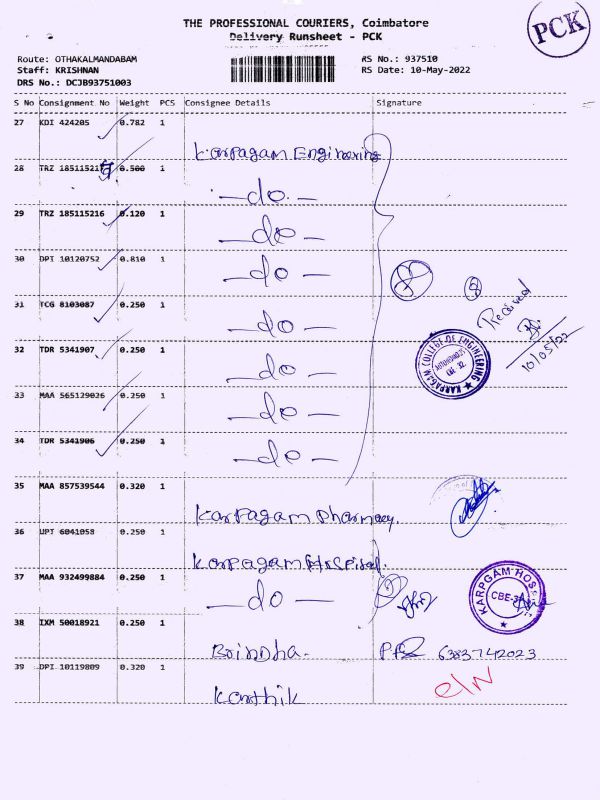 THE PROFESSIONAL COURIERS, Coimbatore
Delivery Runsheet - PCK
PCK
Route: OTHAKALMANDABAM
Staff: KRISHNAN
DRS No.: DCJB93751003
RS No.: 937510
RS Date: 10-May-2022
S No Consignment No Weight PCS Consignee Details Signature
27 KDI 424205 0.782 1
Karpagam Engineering
28 TRZ 0.500 1
—do—
29 TRZ 185115216 0.120 1
—do—
30 DPI 10120752 0.810 1
—do—
31 TCG 8103087 0.250 1
—do—
Received
10/05/22
32 TDR 5341907 0.250 1
—do—
KARPAGAM COLLEGE OF ENGINEERING
AUTONOMOUS
CBE-32
33 MAA 565129026 0.250 1
—do—
34 TDR 5341906 0.250 1
—do—
35 MAA 857539544 0.320 1
Karpagam Pharmacy.
36 UPT 6041058 0.250 1
Karpagam Hospital.
37 MAA 932499884 0.250 1
—do—
38 IXM 50018921 0.250 1
Brindha. 6383742023
39 DPI 10119809 0.320 1
Karthik